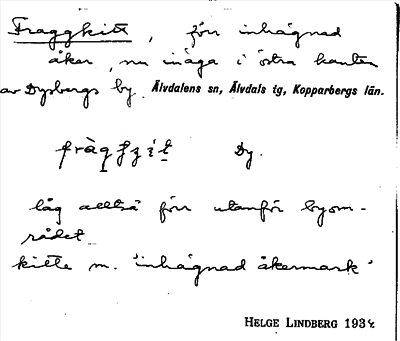 Fraggkitt, förr inhägnad
åker, nu inäga i östra kanten
av Dysbergs by. Älvdalens sn, Älvdals tg, Kopparbergs län.
Dy.
låg alltså förr utanför byom-
rådet
kitte m. 'inhägnad åkermark'
HELGE LINDBERG 1934.